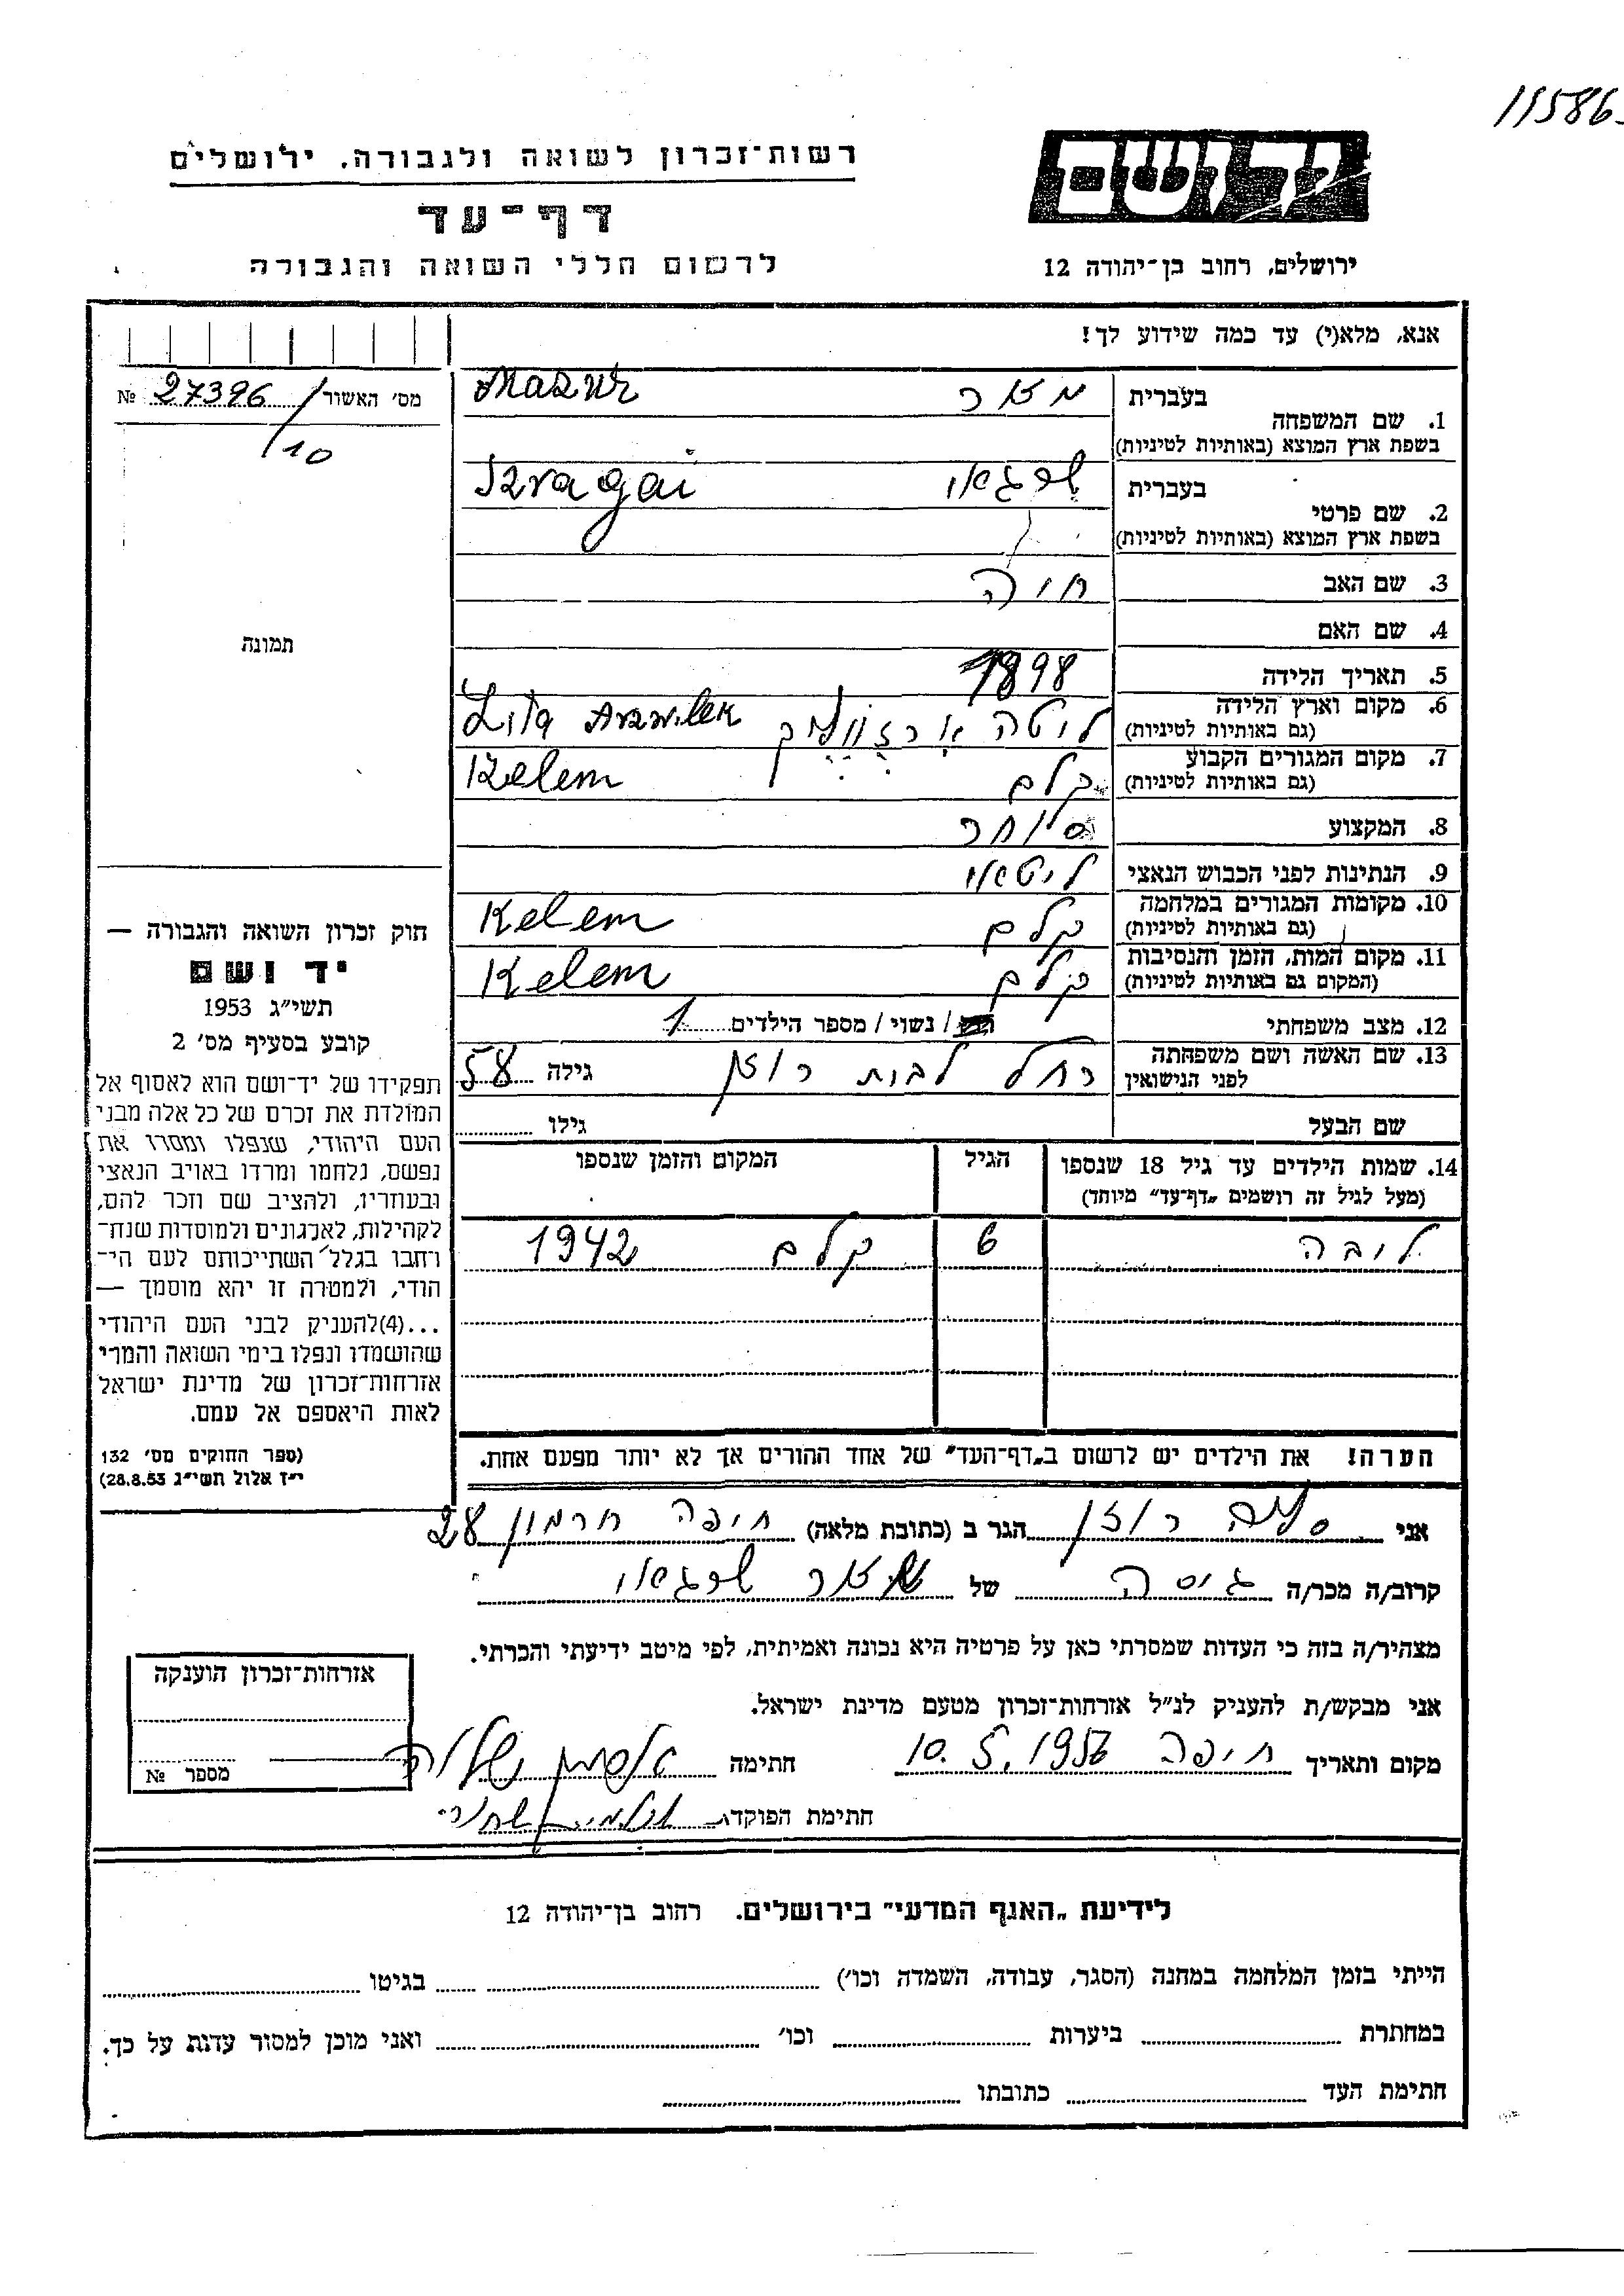 11586
רשות־זכרון לשואה ולגבורה, ירושלים
יד ושם
דף־עד
לרשום חללי השואה והגבורה
ירושלים, רחוב בן־יהודה 12
אנא, מלא(י) עד כמה שידוע לך!
מס׳ האשור № 27396/10
1. שם המשפחה
בעברית מזאר
בשפת ארץ המוצא (באותיות לטיניות) Mazur
2. שם פרטי
בעברית שרגאי
בשפת ארץ המוצא (באותיות לטיניות) Szragai
3. שם האב חיה
4. שם האם
5. תאריך הלידה 1898
6. מקום וארץ הלידה ליטה Lita
(גם באותיות לטיניות)
7. מקום המגורים הקבוע קלם Kelem
(גם באותיות לטיניות)
8. המקצוע סוחר
9. הנתינות לפני הכבוש הנאצי ליטאי
10. מקומות המגורים במלחמה קלם Kelem
(גם באותיות לטיניות)
11. מקום המות, הזמן והנסיבות קלם Kelem
(המקום גם באותיות לטיניות)
12. מצב משפחתי / נשוי / מספר הילדים 1
13. שם האשה ושם משפחתה רחל לבית רוזן גילה 58
לפני הנישואין
שם הבעל גילו
14. שמות הילדים עד גיל 18 שנספו הגיל המקום והזמן שנספו
(מעל לגיל זה רושמים „דף־עד״ מיוחד)
ליבה 6 קלם 1942
הערה! את הילדים יש לרשום ב„דף־העד״ של אחד ההורים אך לא יותר מפעם אחת.
תמונה
חוק זכרון השואה והגבורה —
יד ושם
תשי״ג 1953
קובע בסעיף מס׳ 2
תפקידו של יד־ושם הוא לאסוף אל
המולדת את זכרם של כל אלה מבני
העם היהודי, שנפלו ומסרו את
נפשם, נלחמו ומרדו באויב הנאצי
ובעוזריו, ולהציב שם וזכר להם,
לקהילות, לארגונים ולמוסדות שנח־
רבו בגלל השתייכותם לעם הי־
הודי, ולמטרה זו יהא מוסמך —
...(4)להעניק לבני העם היהודי
שהושמדו ונפלו בימי השואה והמרי
אזרחות־זכרון של מדינת ישראל
לאות היאספם אל עמם.
(ספר החוקים מס׳ 132
י״ז אלול תשי״ג 28.8.53)
אני רוזן הגר ב (כתובת מלאה) חיפה חרמון 28
קרוב/ה מכר/ה גיסה של מזאר שרגאי
מצהיר/ה בזה כי העדות שמסרתי כאן על פרטיה היא נכונה ואמיתית, לפי מיטב ידיעתי והכרתי.
אני מבקש/ת להעניק לנ״ל אזרחות־זכרון מטעם מדינת ישראל.
מקום ותאריך חיפה 10.5.1956 חתימה
חתימת הפוקד
אזרחות־זכרון הוענקה
מספר №
לידיעת „האגף המדעי״ בירושלים, רחוב בן־יהודה 12
הייתי בזמן המלחמה במחנה (הסגר, עבודה, השמדה וכו׳) בגיטו
במחתרת ביערות וכו׳ ואני מוכן למסור עדות על כך.
חתימת העד כתובתו